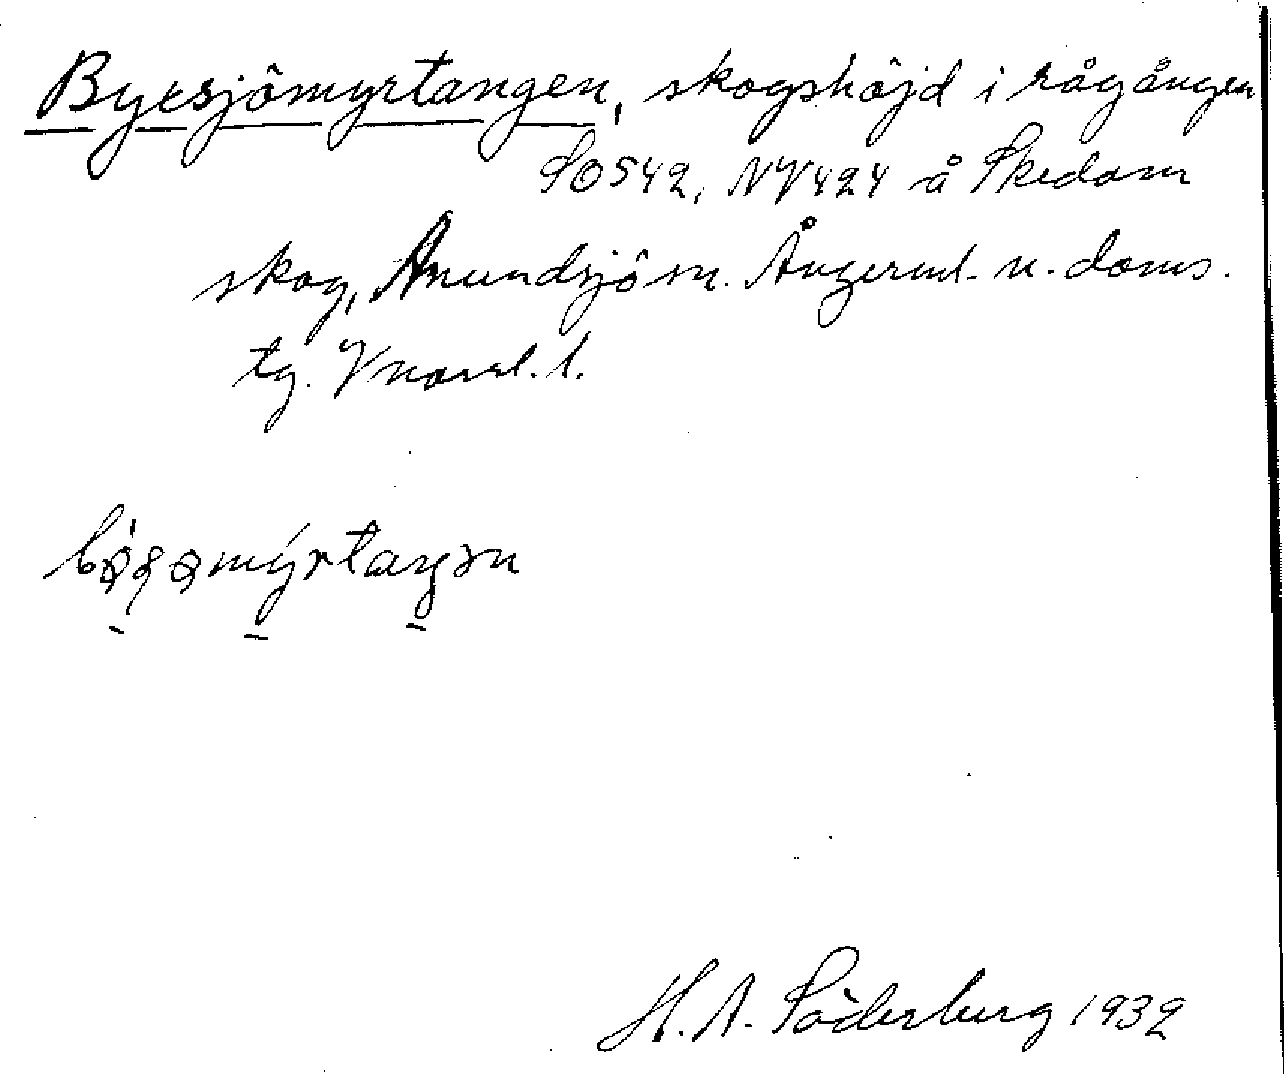 Byxsjömyrtangen, skogshöjd i rågången
SO542, NV424 å Skedom
skog, Anundsjö sn. Ångerml. n. doms.
tg. Vnorrl. l.
H. A. Söderberg 1932